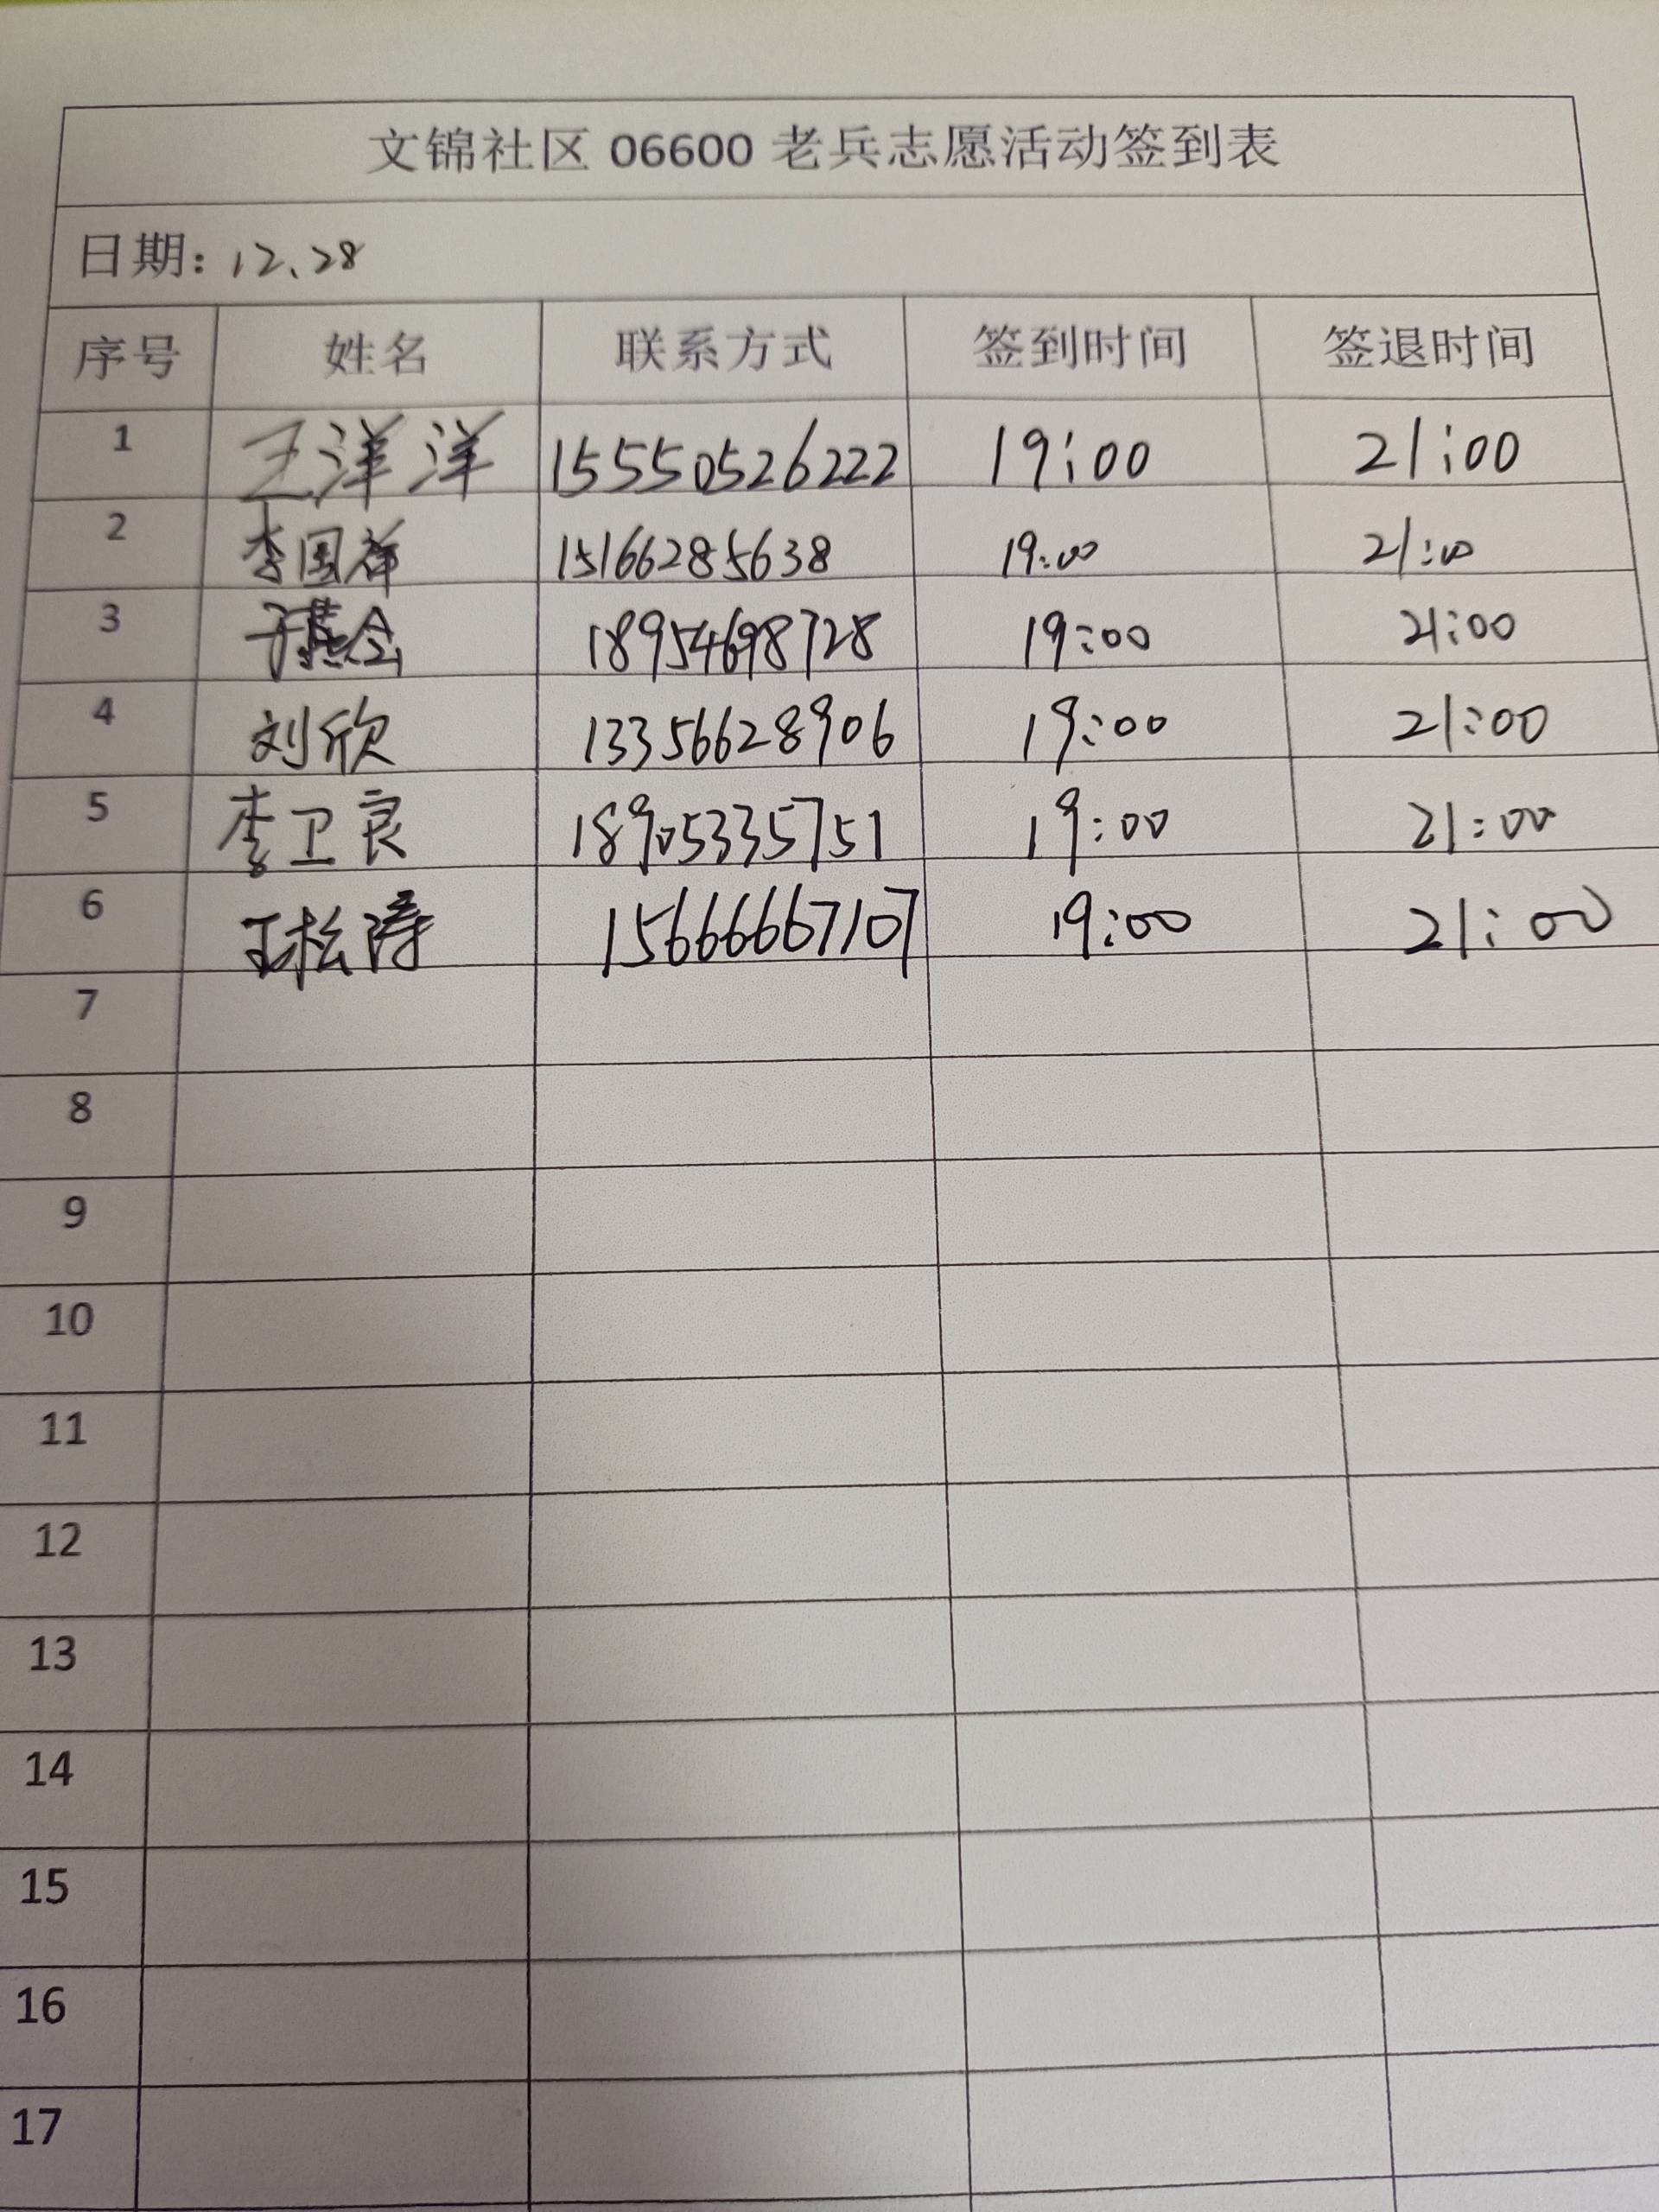 文锦社区 06600 老兵志愿活动签到表
日期: 12、28
序号 姓名 联系方式 签到时间 签退时间
1 王洋洋 15550526222 19:00 21:00
2 李国祥 15166285638 19:00 21:00
3 18954698728 19:00 21:00
4 刘欣 13356628906 19:00 21:00
5 李卫良 18905335751 19:00 21:00
6 王松涛 15666667107 19:00 21:00
7
8
9
10
11
12
13
14
15
16
17